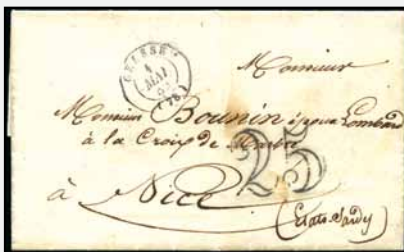 GRASSE
4
MAI
(78)
Monsieur
Monsieur Bounin époux Lombard
à la Croix de Marbre
25
à Nice
(États Sardes)